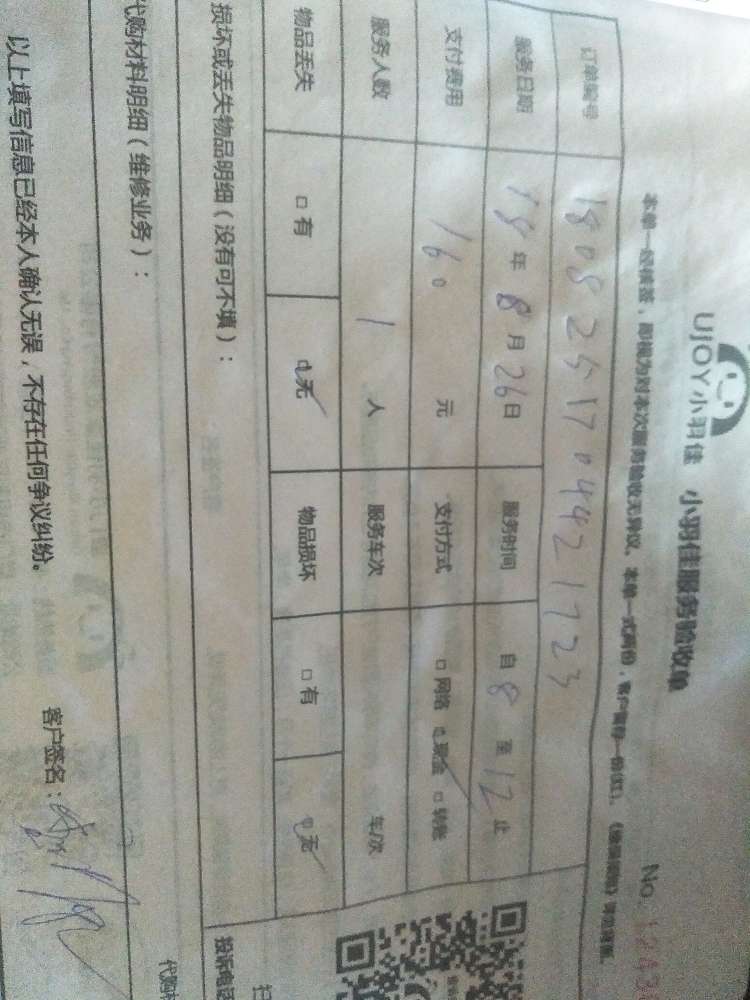 UJOY小羽佳 小羽佳服务验收单
No.
本单一经核签，即视为对本次服务验收无异议。本单一式两份，客户留存一份(红)，
订单编号 1808251704421723
服务日期 18年8月26日 服务时间 自8至12止
支付费用 160元 支付方式 □网络 ☑现金 □转账
服务人数 1人 服务车次 车/次
物品丢失 □有 ☑无 物品损坏 □有 ☑无
损坏或丢失物品明细（没有可不填）：
投诉电话
代购材料明细（维修业务）：
代购
以上填写信息已经本人确认无误，不存在任何争议纠纷。 客户签名：